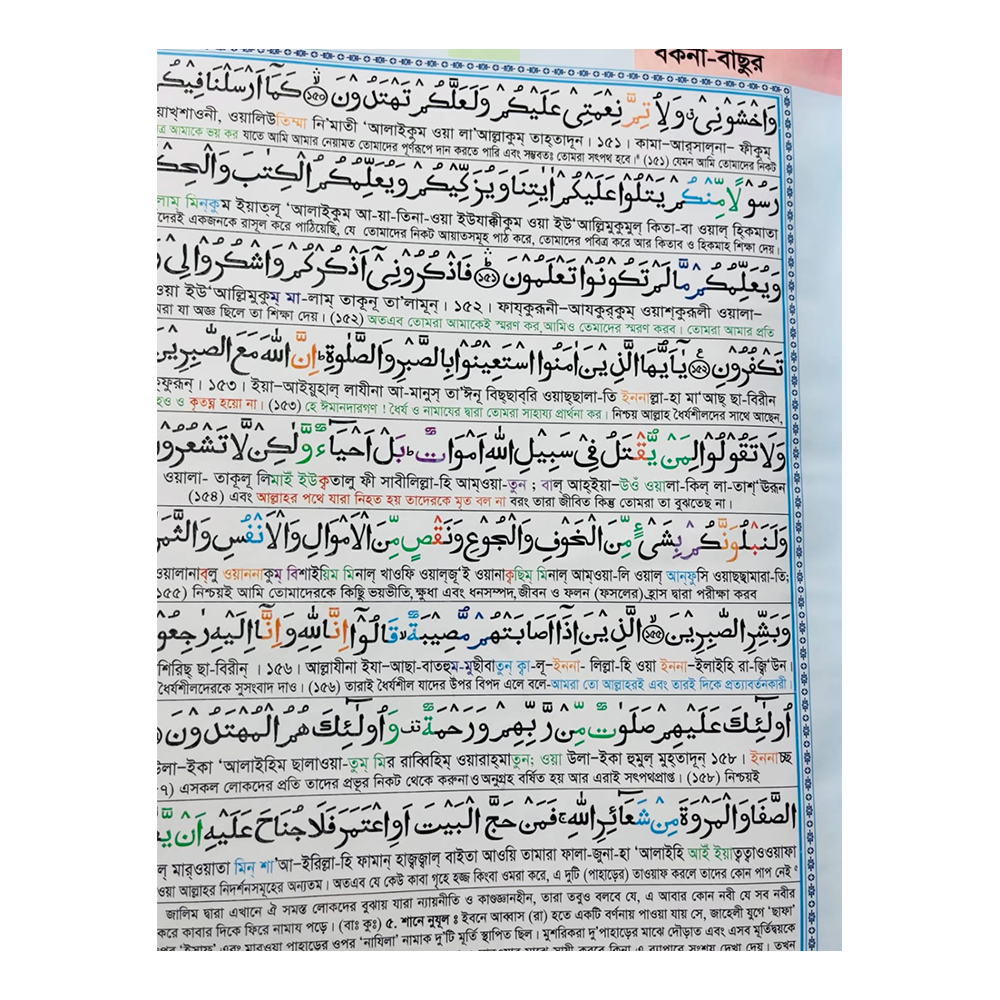 বকনা-বাছুর
وَاخْشَوْنِيْ ۗ وَلِاُتِمَّ نِعْمَتِيْ عَلَيْكُمْ وَلَعَلَّكُمْ تَهْتَدُوْنَ ﴿۱۵۰﴾ كَمَآ اَرْسَلْنَا فِيْكُ
য়াখ্‌শাওনী, ওয়ালিউতিম্মা নি'মাতী 'আলাইকুম ওয়া লা'আল্লাকুম্ তাহ্‌তাদূন। ১৫১। কামা–আর্‌সাল্‌না– ফীকুম্
আমাকে ভয় কর যাতে আমি আমার নেয়ামত তোমাদের পূর্ণরূপে দান করতে পারি এবং সম্ভবতঃ তোমরা সৎপথ হবে। (১৫১) যেমন আমি তোমাদের নিকট
رَسُوْلًا مِّنْكُمْ يَتْلُوْا عَلَيْكُمْ اٰيٰتِنَا وَيُزَكِّيْكُمْ وَيُعَلِّمُكُمُ الْكِتٰبَ وَالْحِكْ
লাম্ মিন্‌কুম ইয়াতলূ 'আলাইকুম আ-য়া-তিনা-ওয়া ইউযাক্কীকুম ওয়া ইউ'আল্লিমুকুমুল্ কিতা-বা ওয়াল্ হিকমাতা
দেরই একজনকে রাসূল করে পাঠিয়েছি, যে তোমাদের নিকট আয়াতসমূহ পাঠ করে, তোমাদের পবিত্র করে আর কিতাব ও হিকমাহ্ শিক্ষা দেয়।
وَيُعَلِّمُكُمْ مَّا لَمْ تَكُوْنُوْا تَعْلَمُوْنَ ﴿۱۵۱﴾ فَاذْكُرُوْنِيْٓ اَذْكُرْكُمْ وَاشْكُرُوْا لِيْ وَ
ওয়া ইউ'আল্লিমুকুম্ মা-লাম্ তাকূনূ তা'লামূন্। ১৫২। ফায্‌কুরূনী–আযকুর্‌কুম্ ওয়াশ্‌কুরূলী ওয়ালা–
রা যা অজ্ঞ ছিলে তা শিক্ষা দেয়। (১৫২) অতএব তোমরা আমাকেই স্মরণ কর,আমিও তোমাদের স্মরণ করব। তোমরা আমার প্রতি
تَكْفُرُوْنِ ﴿۱۵۲﴾ يٰٓاَيُّهَا الَّذِيْنَ اٰمَنُوا اسْتَعِيْنُوْا بِالصَّبْرِ وَالصَّلٰوةِ ؕ اِنَّ اللهَ مَعَ الصّٰبِرِيْنَ
ফুরূন্। ১৫৩। ইয়া–আইয়ুহাল্ লাযীনা আ-মানুস্ তা'ঈনূ বিছ্‌ছাব্‌রি ওয়াছ্‌ছালা-তি ইননাল্লা-হা মা'আছ্ ছা-বিরীন
হও ও কৃতঘ্ন হয়ো না। (১৫৩) হে ঈমানদারগণ! ধৈর্য ও নামাযের দ্বারা তোমরা সাহায্য প্রার্থনা কর। নিশ্চয় আল্লাহ ধৈর্যশীলদের সাথে আছেন,
وَلَا تَقُوْلُوْا لِمَنْ يُّقْتَلُ فِيْ سَبِيْلِ اللهِ اَمْوَاتٌ ؕ بَلْ اَحْيَآءٌ وَّلٰكِنْ لَّا تَشْعُرُوْ
ওয়ালা- তাকূলূ লিমাইঁ ইউক্বতালূ ফী সাবীলিল্লা-হি আম্‌ওয়া-তুন ; বাল্ আহ্‌ইয়া–উওঁ ওয়ালা-কিল্ লা-তাশ্‌'ঊরূন
(১৫৪) এবং আল্লাহর পথে যারা নিহত হয় তাদেরকে মৃত বল না বরং তারা জীবিত কিন্তু তোমরা তা বুঝতেছ না।
وَلَنَبْلُوَنَّكُمْ بِشَيْءٍ مِّنَ الْخَوْفِ وَالْجُوْعِ وَنَقْصٍ مِّنَ الْاَمْوَالِ وَالْاَنْفُسِ وَالثَّمَر
ওয়ালানাব্‌লু ওয়াননাকুম্ বিশাইয়িম মিনাল্ খাওফি ওয়াল্‌জূ'ই ওয়ানাক্বছিম্ মিনাল্ আম্‌ওয়া-লি ওয়াল্ আন্‌ফুসি ওয়াছছামারা-তি;
১৫৫) নিশ্চয়ই আমি তোমাদেরকে কিছু ভয়ভীতি,ক্ষুধা এবং ধনসম্পদ,জীবন ও ফলন (ফসলের) হ্রাস দ্বারা পরীক্ষা করব
وَبَشِّرِ الصّٰبِرِيْنَ ﴿۱۵۵﴾ الَّذِيْنَ اِذَآ اَصَابَتْهُمْ مُّصِيْبَةٌ ۙ قَالُوْٓا اِنَّا لِلهِ وَاِنَّآ اِلَيْهِ رٰجِعُوْ
শিরিছ্ ছা-বিরীন্। ১৫৬। আল্লাযীনা ইযা–আছা-বাতহুম-মুছীবাতুন্ ক্বা-লূ–ইননা- লিল্লা-হি ওয়া ইননা–ইলাইহি রা-জ্বি'উন।
ধৈর্যশীলদেরকে সুসংবাদ দাও। (১৫৬) তারাই ধৈর্যশীল যাদের উপর বিপদ এলে বলে-আমরা তো আল্লাহরই এবং তারই দিকে প্রত্যাবর্তনকারী।
اُولٰٓئِكَ عَلَيْهِمْ صَلَوٰتٌ مِّنْ رَّبِّهِمْ وَرَحْمَةٌ ۫ وَاُولٰٓئِكَ هُمُ الْمُهْتَدُوْنَ
উলা–ইকা 'আলাইহিম ছালাওয়া-তুম্ মির রাব্বিহিম্ ওয়ারাহ্‌মাতুন; ওয়া উলা–ইকা হুমুল্ মুহ্‌তাদূন্ ১৫৮। ইননাচ্ছ
৭) এসকল লোকদের প্রতি তাদের প্রভূর নিকট থেকে করুনাও অনুগ্রহ বর্ষিত হয় আর এরাই সৎপথপ্রাপ্ত। (১৫৮) নিশ্চয়ই
الصَّفَا وَالْمَرْوَةَ مِنْ شَعَآئِرِ اللهِ ۚ فَمَنْ حَجَّ الْبَيْتَ اَوِ اعْتَمَرَ فَلَا جُنَاحَ عَلَيْهِ اَنْ يَّ
ল্ মার্‌ওয়াতা মিন্ শা'আ–ইরিল্লা-হি ফামান্ হাজ্বজ্বাল্ বাইতা আওয়ি তামারা ফালা-জুনা-হা 'আলাইহি আইঁ ইয়াত্ত্বাওওয়াফা
ওয়া আল্লাহর নিদর্শনসমূহের অন্যতম। অতএব যে কেউ কাবা গৃহে হজ্জ কিংবা ওমরা করে, এ দুটি (পাহাড়ের) তাওয়াফ করলে তাদের কোন পাপ নেই
জালিম দ্বারা এখানে ঐ সমস্ত লোকদের বুঝায় যারা ন্যায়নীতি ও কাণ্ডজ্ঞানহীন, তারা তবুও বলবে যে, এ আবার কোন নবী যে সব নবীর
করে কাবার দিকে ফিরে নামায পড়ে। (বাঃ কুঃ) ৫. শানে নুযূল ঃ ইবনে আব্বাস (রা) হতে একটি বর্ণনায় পাওয়া যায় সে, জাহেলী যুগে 'ছাফা'
'ইসাফ' এবং মারওয়া পাহাড়ের ওপর 'নাযিলা' নামাক দু'টি মূর্তি স্থাপিত ছিল। মুশরিকরা দু'পাহাড়ের মাঝে দৌড়াত এবং এসব মূর্তিদ্বয়কে